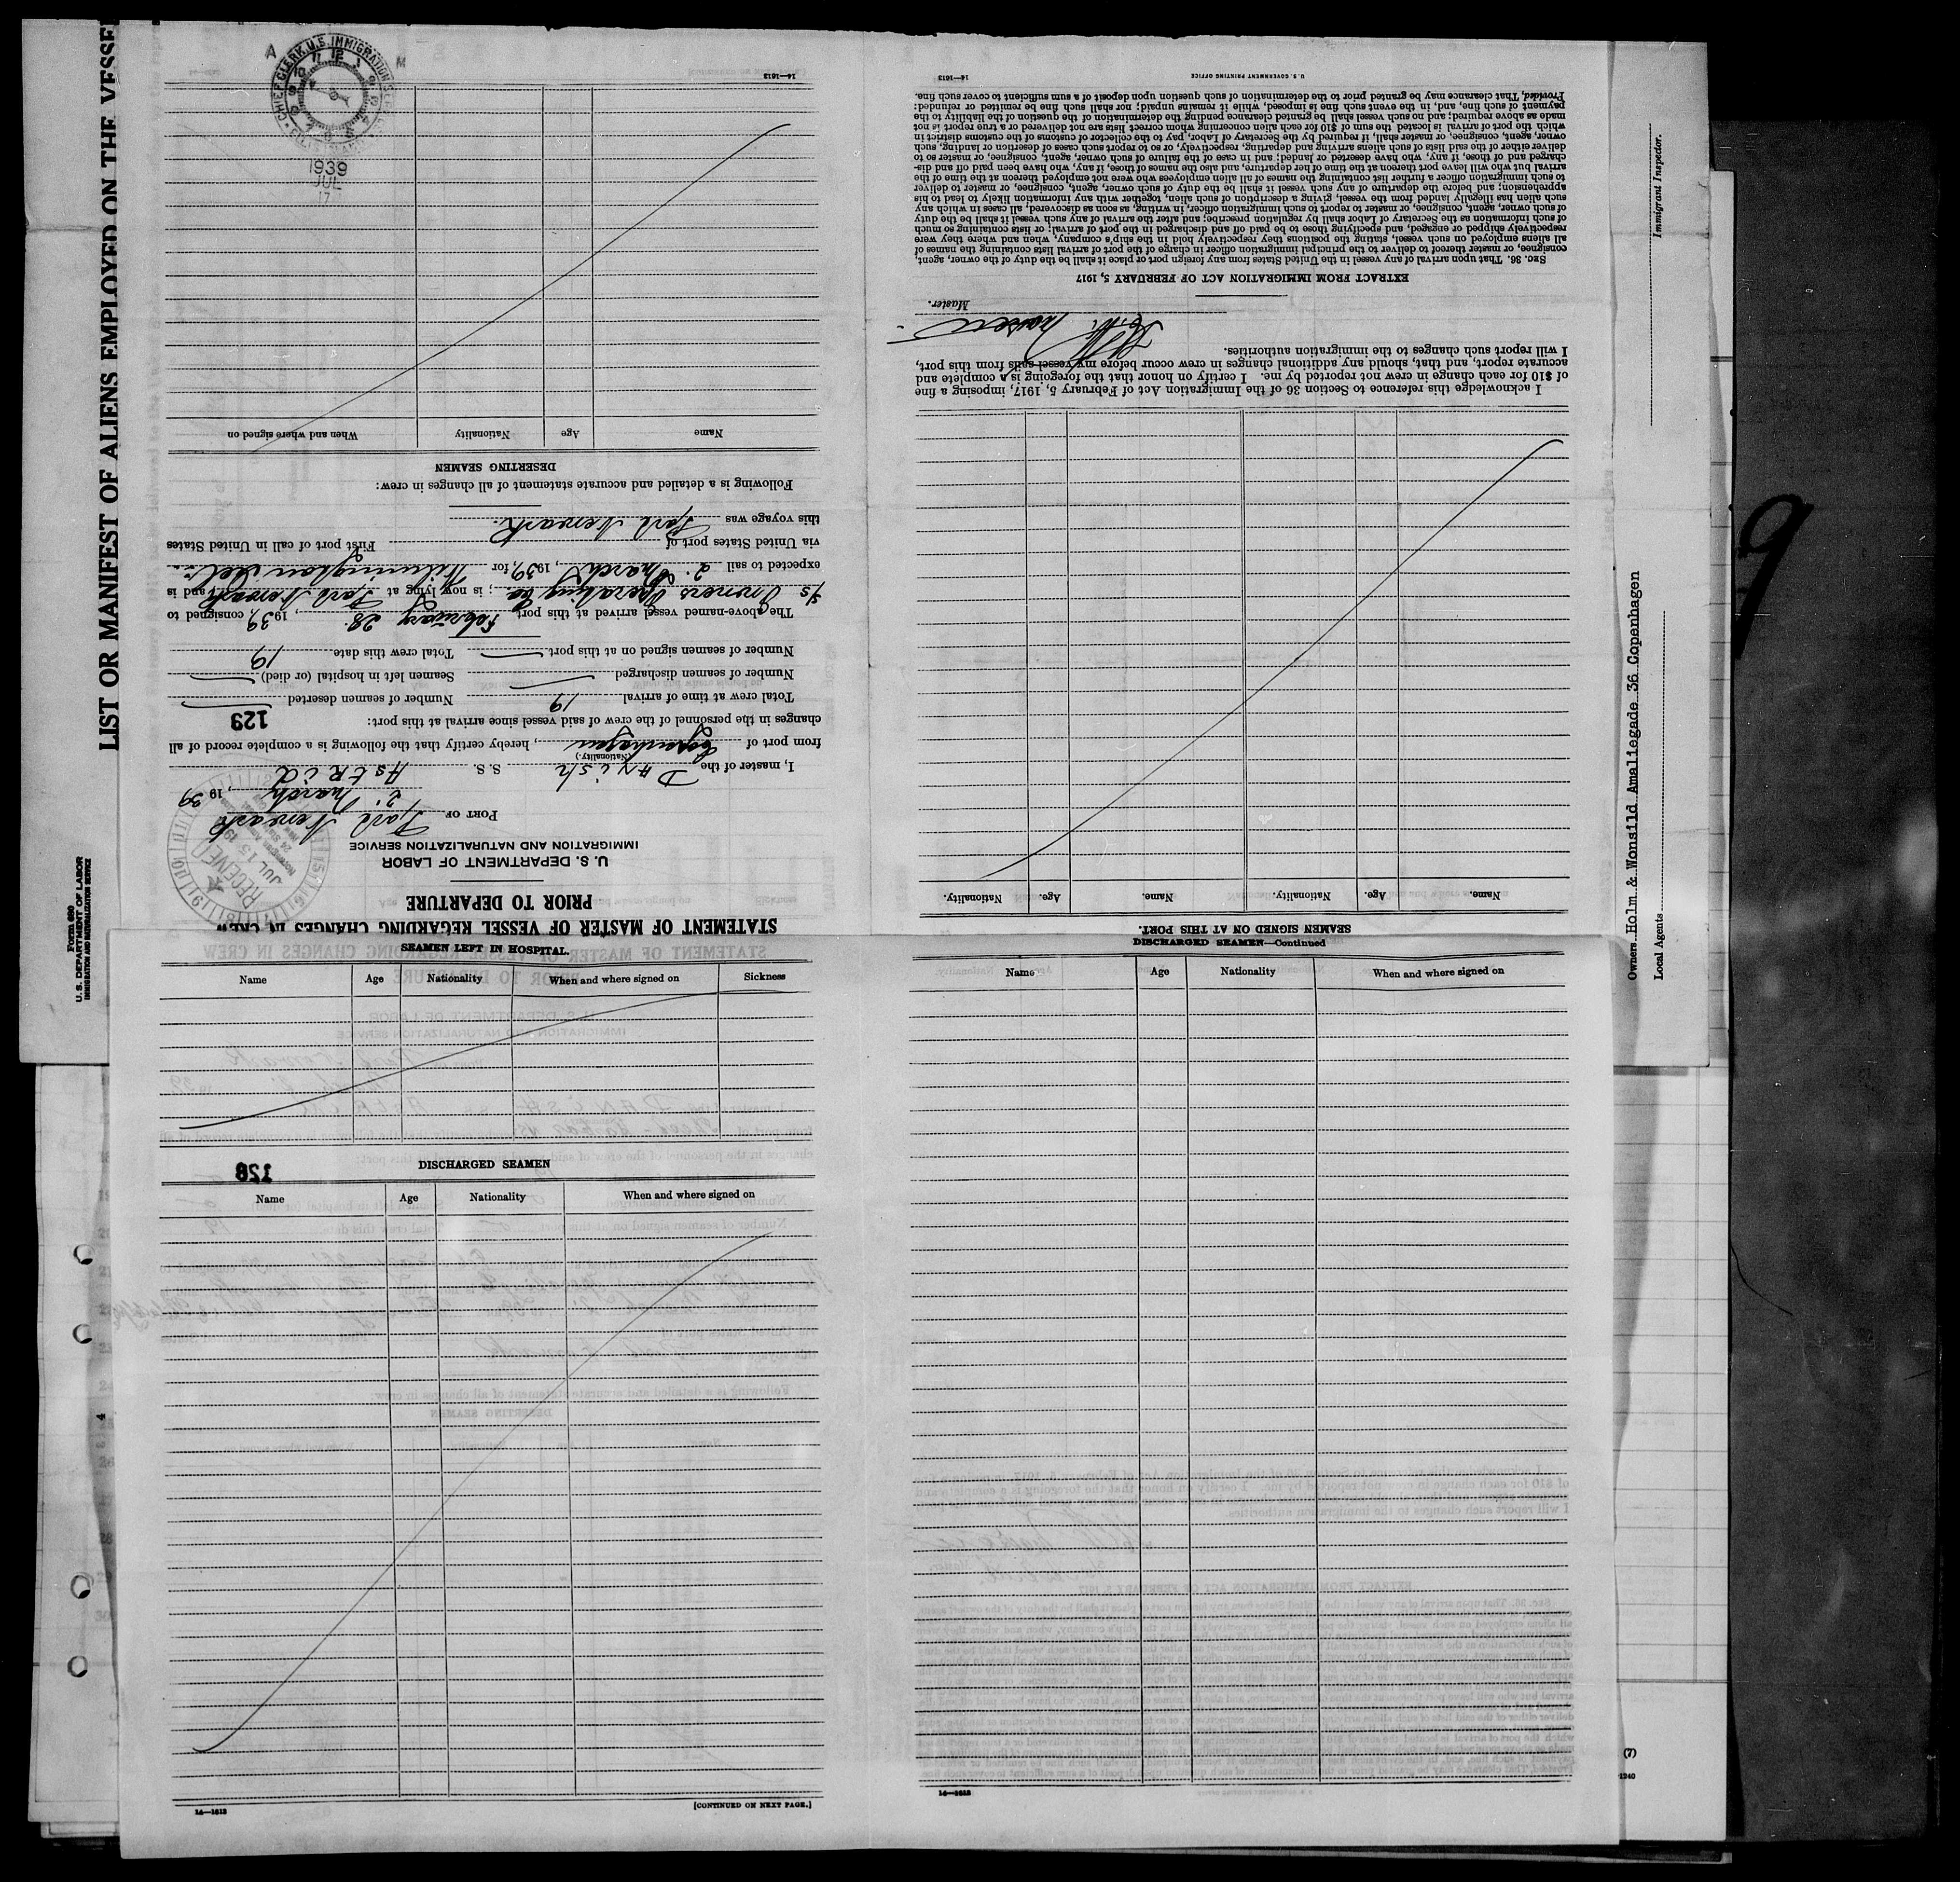 LIST OR MANIFEST OF ALIENS EMPLOYED ON THE VESSE
Form 680
U. S. DEPARTMENT OF LABOR
IMMIGRATION AND NATURALIZATION SERVICE
STATEMENT OF MASTER OF VESSEL REGARDING CHANGES IN CREW
PRIOR TO DEPARTURE
U. S. DEPARTMENT OF LABOR
IMMIGRATION AND NATURALIZATION SERVICE
RECEIVED
JUL 15 19
PORT OF Port Newark
2. March, 19 39
I, master of the DANish S. S. AstRid
(Nationality.)
from port of Copenhagen, hereby certify that the following is a complete record of all
changes in the personnel of the crew of said vessel since arrival at this port:
129
Total crew at time of arrival 19 Number of seamen deserted
Number of seamen discharged Seamen left in hospital (or died)
Number of seamen signed on at this port Total crew this date 19
The above-named vessel arrived at this port February 28., 1939, consigned to
Owners Operating Co.; is now lying at Port Newark and is
expected to sail 2. March, 1939, for Wilmington Del.
via United States port of First port of call in United States
this voyage was Port Newark.
Following is a detailed and accurate statement of all changes in crew:
DESERTING SEAMEN
Name Age Nationality When and where signed on
14—1613
CHIEF CLERK, U.S. IMMIGRATION
A M
1939
JUL
17
SEAMEN SIGNED ON AT THIS PORT.
Name. Age. Nationality. Name. Age. Nationality.
I acknowledge this reference to Section 36 of the Immigration Act of February 5, 1917, imposing a fine
of $10 for each change in crew not reported by me. I certify on honor that the foregoing is a complete and
accurate report, and that, should any additional changes in crew occur before my vessel sails from this port,
I will report such changes to the immigration authorities.
Master.
EXTRACT FROM IMMIGRATION ACT OF FEBRUARY 5, 1917
SEC. 36. That upon arrival of any vessel in the United States from any foreign port or place it shall be the duty of the owner, agent,
consignee, or master thereof to deliver to the principal immigration officer in charge of the port of arrival lists containing the names of
all aliens employed on such vessel, stating the positions they respectively hold in the ship's company, when and where they were
respectively shipped or engaged, and specifying those to be paid off and discharged in the port of arrival; or lists containing so much
of such information as the Secretary of Labor shall by regulation prescribe; and after the arrival of any such vessel it shall be the duty
of such owner, agent, consignee, or master to report to such immigration officer, in writing, as soon as discovered, all cases in which any
such alien has illegally landed from the vessel, giving a description of such alien, together with any information likely to lead to his
apprehension; and before the departure of any such vessel it shall be the duty of such owner, agent, consignee, or master to deliver
to such immigration officer a further list containing the names of all alien employees who were not employed thereon at the time of the
arrival but who will leave port thereon at the time of her departure, and also the names of those, if any, who have been paid off and dis-
charged and of those, if any, who have deserted or landed; and in case of the failure of such owner, agent, consignee, or master so to
deliver either of the said lists of such aliens arriving and departing, respectively, or so to report such cases of desertion or landing, such
owner, agent, consignee, or master shall, if required by the Secretary of Labor, pay to the collector of customs of the customs district in
which the port of arrival is located the sum of $10 for each alien concerning whom correct lists are not delivered or a true report is not
made as above required; and no such vessel shall be granted clearance pending the determination of the question of the liability to the
payment of such fine, and, in the event such fine is imposed, while it remains unpaid; nor shall such fine be remitted or refunded:
Provided, That clearance may be granted prior to the determination of such question upon deposit of a sum sufficient to cover such fine.
U. S. GOVERNMENT PRINTING OFFICE 14—1613
Immigrant Inspector.
Owners Holm & Wonsild Amaliegade 36 Copenhagen
Local Agents
9
SEAMEN LEFT IN HOSPITAL.
Name Age Nationality When and where signed on Sickness
128
DISCHARGED SEAMEN
Name Age Nationality When and where signed on
14—1613 [CONTINUED ON NEXT PAGE.]
DISCHARGED SEAMEN—Continued
Name Age Nationality When and where signed on
14—1613
(3)
1240